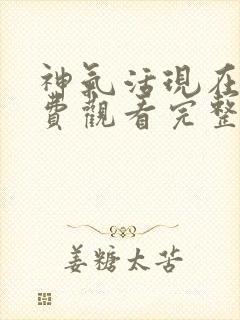 神氣活現在
費觀看完整
姜糖太苦